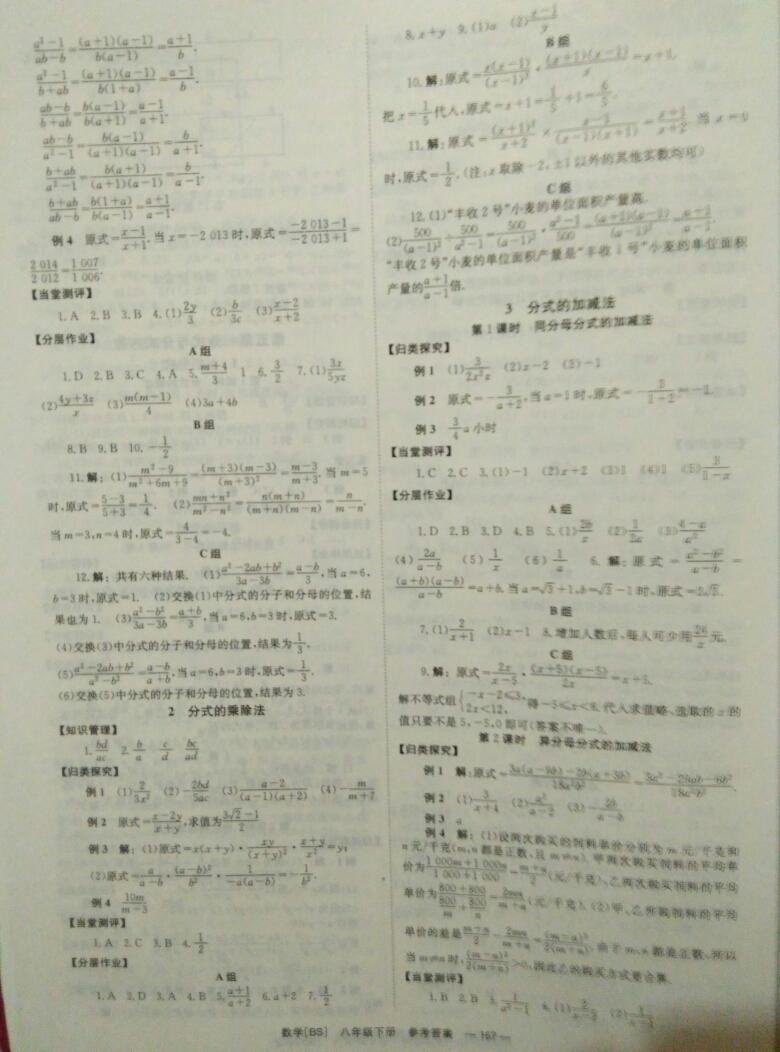 a²-1/ab-b=(a+1)(a-1)/b(a-1)=a+1/b.
a²-1/b+ab=(a+1)(a-1)/b(1+a)=a-1/b.
ab-b/b+ab=b(a-1)/b(a+1)=a-1/a+1.
ab-b/a²-1=b(a-1)/(a+1)(a-1)=b/a+1.
b+ab/a²-1=b(a+1)/(a+1)(a-1)=b/a-1.
b+ab/ab-b=b(1+a)/b(a-1)=a+1/a-1.
例4 原式=x-1/x+1.当x=-2 013时,原式=-2 013-1/-2 013+1=
2 014/2 012=1 007/1 006.
【当堂测评】
1.A 2.B 3.B 4.(1)2y/3 (2)b/3c (3)x-2/x+2
【分层作业】
A组
1.D 2.B 3.C 4.A 5.m+4/3 1 6.3/2 7.(1)3z/5yz
(2)4y+3z/x (3)m(m-1)/4 (4)3a+4b
B组
8.B 9.B 10.-1/2
11.解:(1)m²-9/m²+6m+9=(m+3)(m-3)/(m+3)²=m-3/m+3.当m=5
时,原式=5-3/5+3=1/4. (2)mn+n²/m²-n²=n(m+n)/(m+n)(m-n)=n/m-n.
当m=3,n=4时,原式=4/3-4=-4.
C组
12.解:共有六种结果. (1)a²-2ab+b²/3a-3b=a-b/3,当a=6,
b=3时,原式=1. (2)交换(1)中分式的分子和分母的位置,结
果也为1. (3)a²-b²/3a-3b=a+b/3,当a=6,b=3时,原式=3.
(4)交换(3)中分式的分子和分母的位置,结果为1/3.
(5)a²-2ab+b²/a²-b²=a-b/a+b,当a=6,b=3时,原式=1/3.
(6)交换(5)中分式的分子和分母的位置,结果为3.
2 分式的乘除法
【知识管理】
1.bd/ac 2.b/a c/d bc/ad
【归类探究】
例1 (1)2/3x² (2)-2bd/5ac (3)a-2/(a-1)(a+2) (4)-m/m+7
例2 原式=x-2y/x+y,求值为3√2-1/2
例3 解:(1)原式=x(x+y)·xy/(x+y)²·x+y/x²=y;
(2)原式=a/a-b·(a-b)²/b²·1/-a(a-b)=-1/b².
例4 10m/m-3
【当堂测评】
1.A 2.C 3.B 4.1/2
【分层作业】
A组
1.A 2.D 3.A 4.B 5.a+1/a+2 6.a+2 7.1/2
8.x+y 9.(1)a (2)x-1/y
B组
10.解:原式=x(x-1)/(x-1)²·(x+1)(x-1)/x=x+1,
把x=1/5代入,原式=x+1=1/5+1=6/5.
11.解:原式=(x+1)²/x+2×x-1/(x-1)(x+1)=x+1/x+2.当x=0
时,原式=1/2.(注:x取除-2,±1以外的其他实数均可)
C组
12.(1)“丰收2号”小麦的单位面积产量高.
(2)500/(a-1)²÷500/a²-1=500/(a-1)²·a²-1/500=(a+1)(a-1)/(a-1)²=a+1/a-1.
“丰收2号”小麦的单位面积产量是“丰收1号”小麦的单位面积
产量的a+1/a-1倍.
3 分式的加减法
第1课时 同分母分式的加减法
【归类探究】
例1 (1)3/2x²z (2)x-2 (3)-1
例2 原式=-3/a+2,当a=1时,原式=-3/1+2=-1.
例3 3/4a小时
【当堂测评】
1.C 2.C 3.(1)-1 (2)x+2 (3)1 (4)1
【分层作业】
A组
1.D 2.B 3.D 4.B
(4)2a/a-b (5)1/x (6)1/a 6.解:原式=a²-b²/a-b=
(a+b)(a-b)/a-b=a+b.当a=√3+1,b=√3-1时,原式=2√3.
B组
7.(1)2/x+1 (2)x-1 8.增加人数后,每人可少用
C组
9.解:原式=2x/x-5·(x+5)(x-5)/2x=x+5.
解不等式组{-x-2≤3,2x<12,得-5≤x<6,代入求值略.选取的x的
值只要不是5,-5,0即可(答案不唯一).
第2课时 异分母分式的加减法
【归类探究】
例1 解:原式=
例2 (1)3/x+4
例3 a
例4 解:(1)设两次购买的饲料单价分别为m元/千克和
n元/千克(m,n都是正数,且m≠n),甲两次购买饲料的平均单
价为1 000m+1 000n/1 000+1 000=m+n/2(元/千克),乙两次购买饲料的平均
单价为800+800/(800/m+800/n)=2mn/m+n(元/千克).(2)甲、乙所购饲料的平均
单价的差是m+n/2-2mn/m+n=(m-n)²/2(m+n).由于m,n都是正数,所以
当m≠n时,(m-n)²/2(m+n)>0,因此乙的购买方式更合算.
【当堂测评】
1.B 2.B
数学[BS] 八年级下册 参考答案 —167—